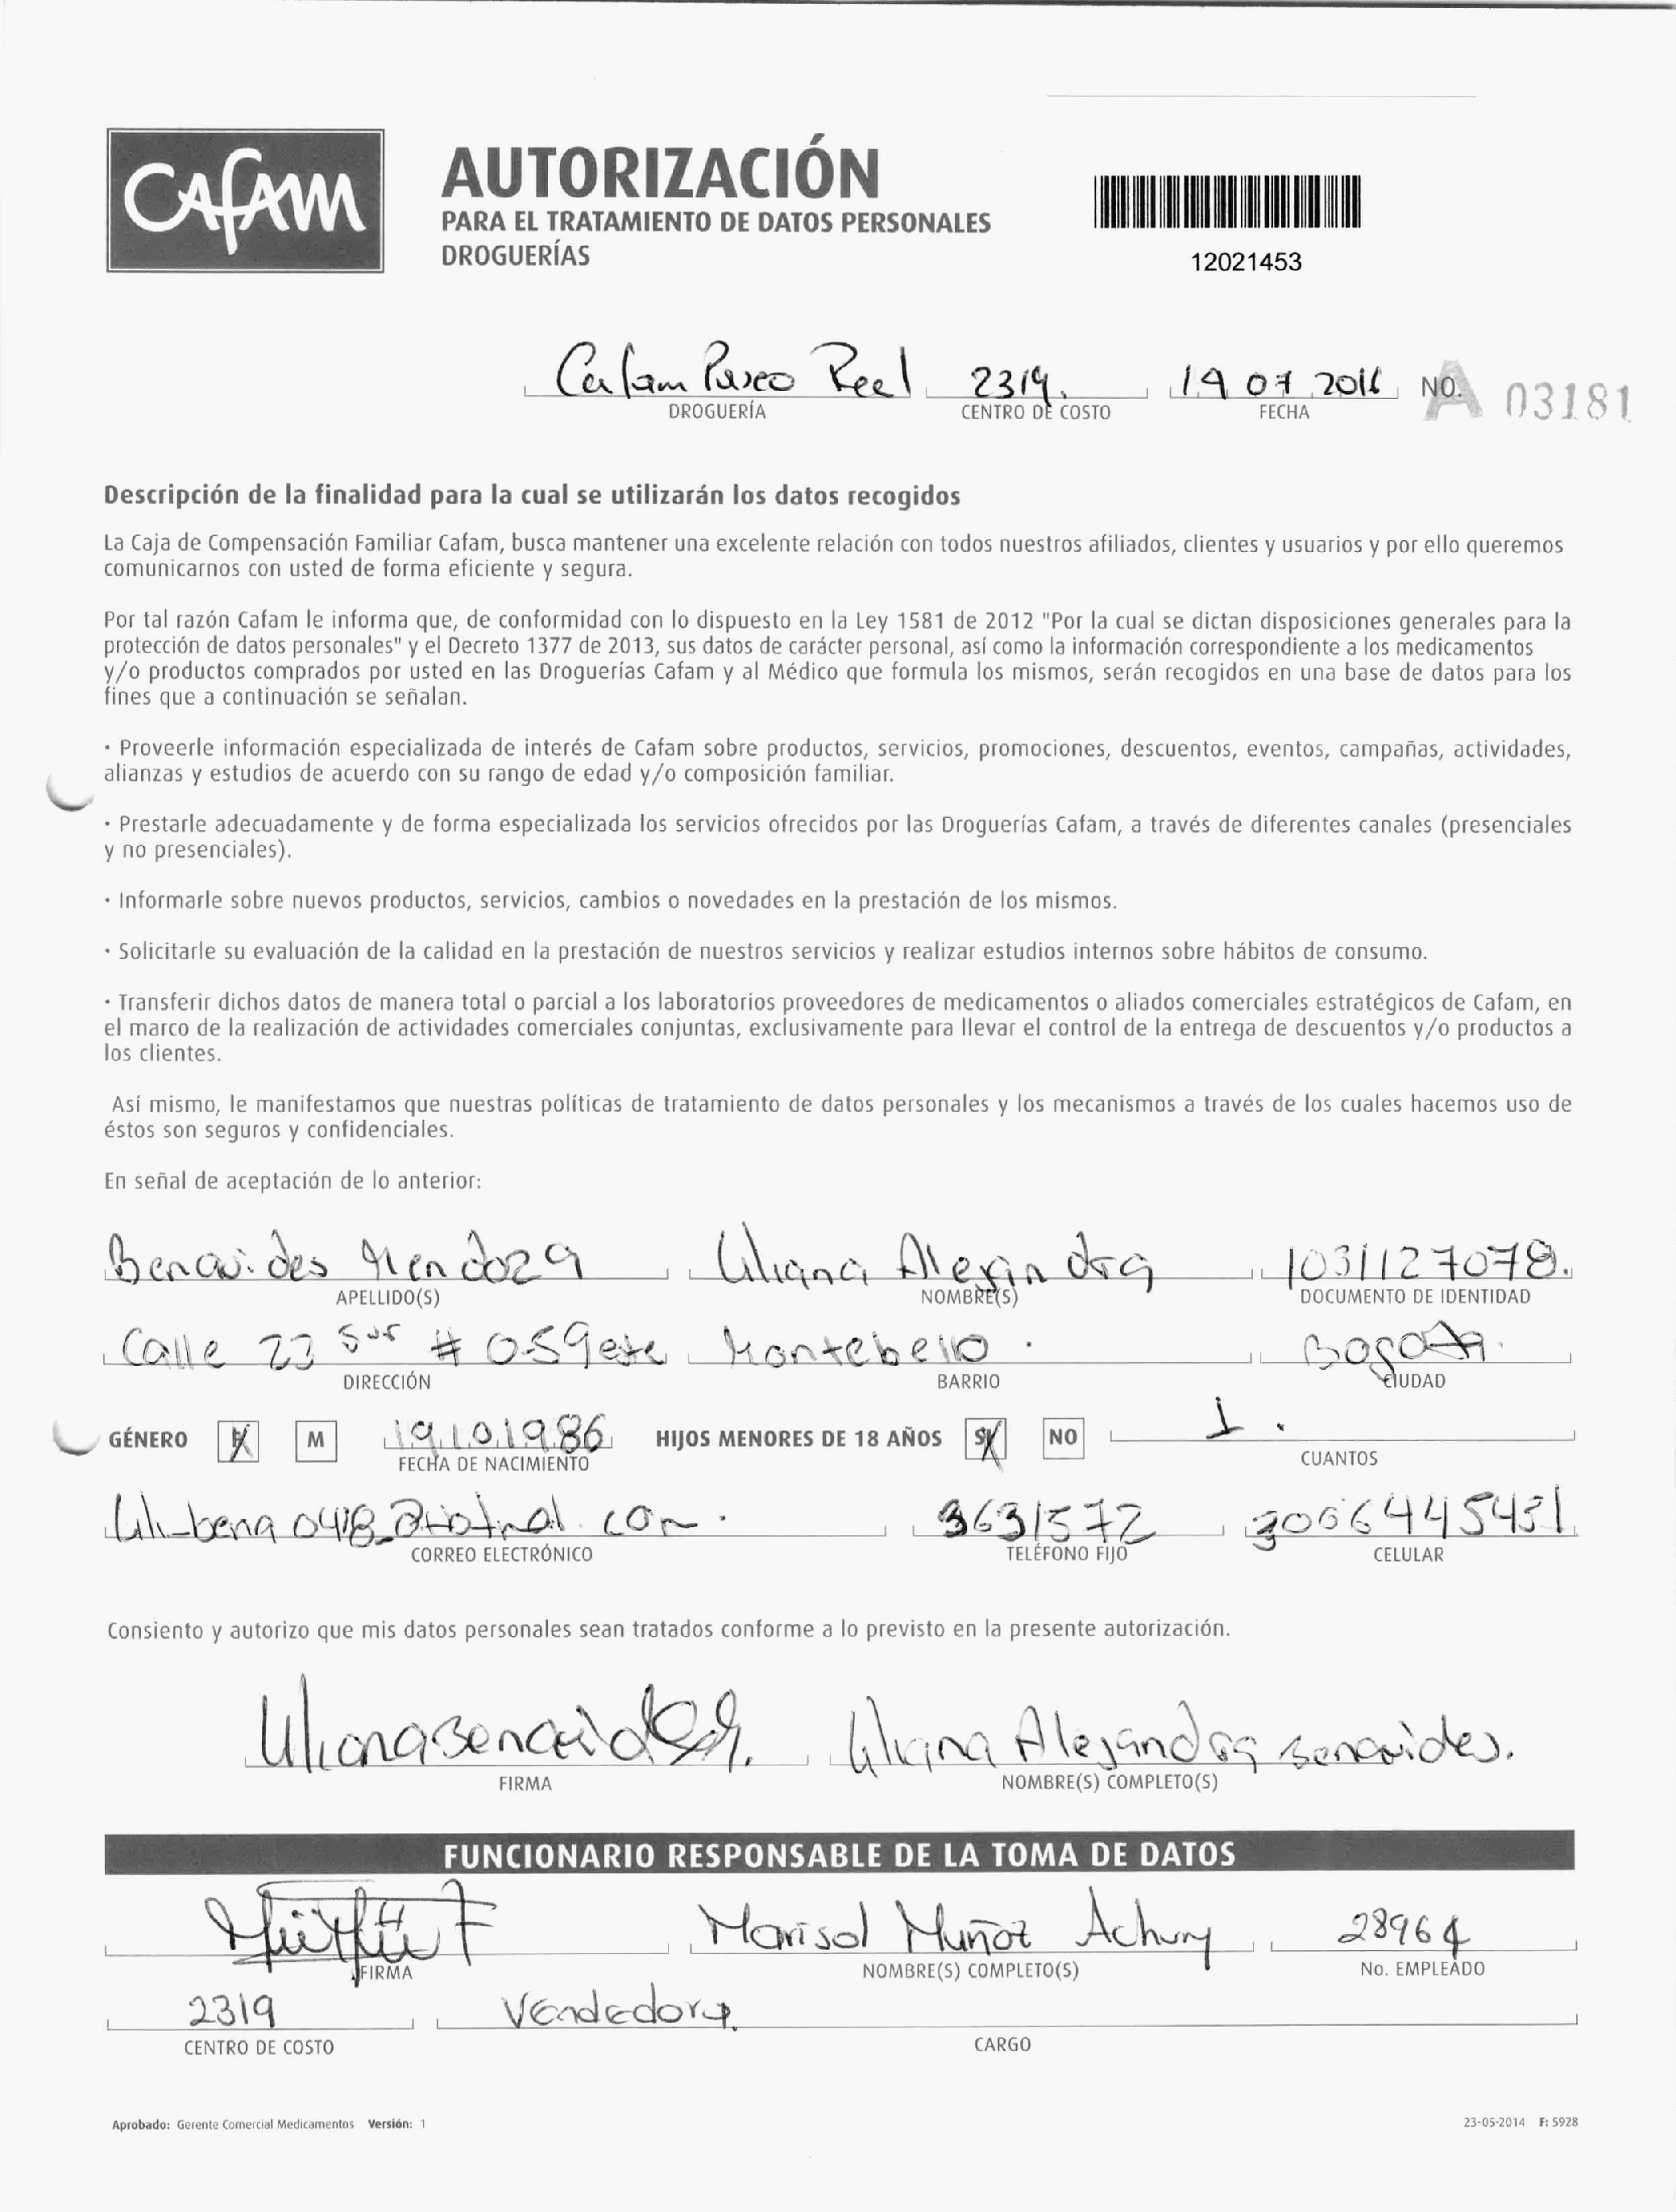 Cafam
AUTORIZACIÓN
PARA EL TRATAMIENTO DE DATOS PERSONALES
DROGUERÍAS
12021453
Cafam Paseo Real 2319. 19 07 2016 NO. A 03181
DROGUERÍA CENTRO DE COSTO FECHA
Descripción de la finalidad para la cual se utilizarán los datos recogidos
La Caja de Compensación Familiar Cafam, busca mantener una excelente relación con todos nuestros afiliados, clientes y usuarios y por ello queremos
comunicarnos con usted de forma eficiente y segura.
Por tal razón Cafam le informa que, de conformidad con lo dispuesto en la Ley 1581 de 2012 "Por la cual se dictan disposiciones generales para la
protección de datos personales" y el Decreto 1377 de 2013, sus datos de carácter personal, así como la información correspondiente a los medicamentos
y/o productos comprados por usted en las Droguerías Cafam y al Médico que formula los mismos, serán recogidos en una base de datos para los
fines que a continuación se señalan.
· Proveerle información especializada de interés de Cafam sobre productos, servicios, promociones, descuentos, eventos, campañas, actividades,
alianzas y estudios de acuerdo con su rango de edad y/o composición familiar.
· Prestarle adecuadamente y de forma especializada los servicios ofrecidos por las Droguerías Cafam, a través de diferentes canales (presenciales
y no presenciales).
· Informarle sobre nuevos productos, servicios, cambios o novedades en la prestación de los mismos.
· Solicitarle su evaluación de la calidad en la prestación de nuestros servicios y realizar estudios internos sobre hábitos de consumo.
· Transferir dichos datos de manera total o parcial a los laboratorios proveedores de medicamentos o aliados comerciales estratégicos de Cafam, en
el marco de la realización de actividades comerciales conjuntas, exclusivamente para llevar el control de la entrega de descuentos y/o productos a
los clientes.
Así mismo, le manifestamos que nuestras políticas de tratamiento de datos personales y los mecanismos a través de los cuales hacemos uso de
éstos son seguros y confidenciales.
En señal de aceptación de lo anterior:
Benavides Mendoza Liliana Alejandra 1031127078.
APELLIDO(S) NOMBRE(S) DOCUMENTO DE IDENTIDAD
Calle 22 sur # 059este Montebello. Bogota.
DIRECCIÓN BARRIO CIUDAD
GÉNERO F M 19101986 HIJOS MENORES DE 18 AÑOS SI NO 1.
FECHA DE NACIMIENTO CUANTOS
3631572 3006445431
CORREO ELECTRÓNICO TELÉFONO FIJO CELULAR
Consiento y autorizo que mis datos personales sean tratados conforme a lo previsto en la presente autorización.
Liliana Alejandra Benavides.
FIRMA NOMBRE(S) COMPLETO(S)
FUNCIONARIO RESPONSABLE DE LA TOMA DE DATOS
Marisol Muñoz Achury 28964
FIRMA NOMBRE(S) COMPLETO(S) No. EMPLEADO
2319 Vendedora
CENTRO DE COSTO CARGO
Aprobado: Gerente Comercial Medicamentos Versión: 1 23-05-2014 F: 5928